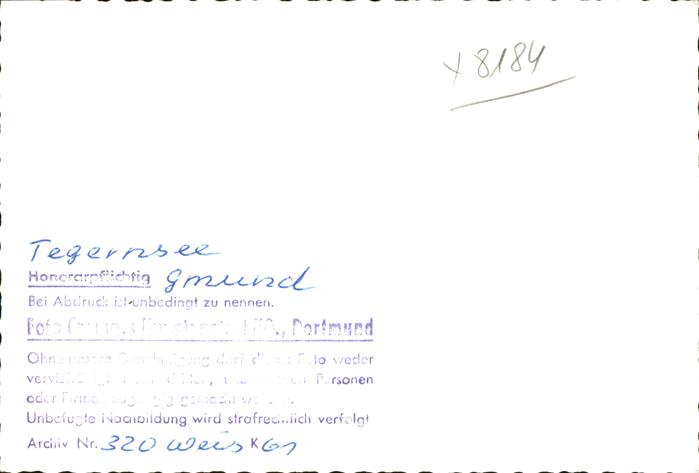 x 8184
Tegernsee
Honorarpflichtig Gmund
Bei Abdruck ist unbedingt zu nennen.
Foto Dortmund
Ohne unsere Genehmigung darf dieses Foto weder
Personen
oder Firmen zugängig gemacht werden.
Unbefugte Nachbildung wird strafrechtlich verfolgt
Archiv Nr. 320 Weis K 61